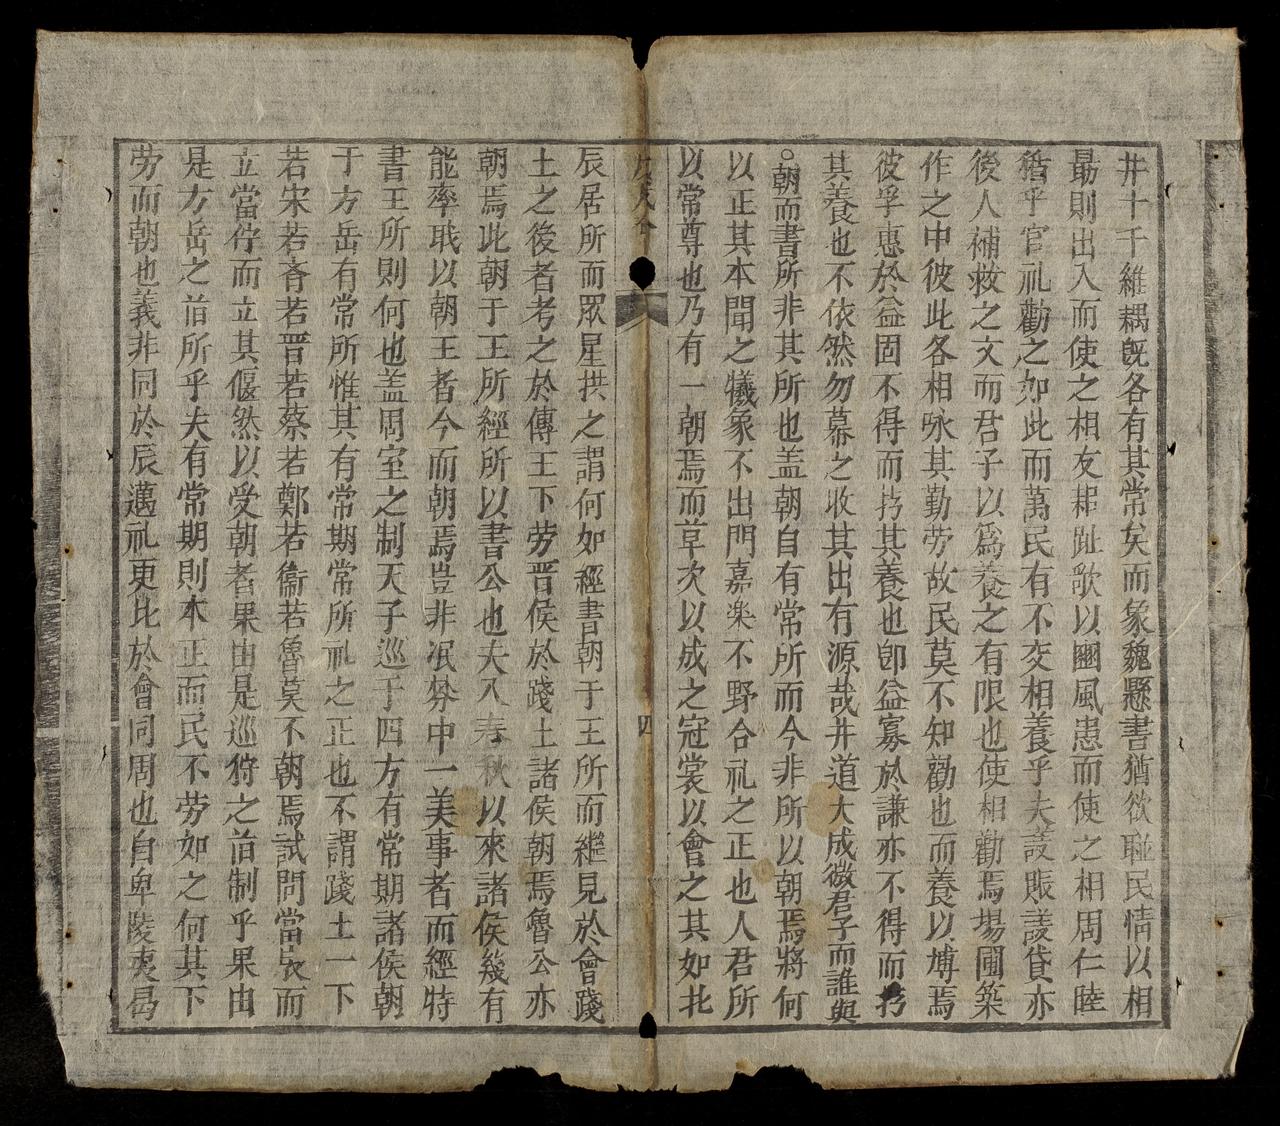 井十千維耦既各有其常矣而象魏懸書猶欲聯民情以相
朂則出入而使之相友耜趾歌以豳風患而使之相周仁睦
猶乎官礼勸之如此而萬民有不交相養乎夫議賑議貸亦
後人補救之文而君子以爲養之有限也使相勸焉場圃築
作之中彼此各相咏其勤劳故民莫不知勸也而養以博焉
彼孚惠於益固不得而扵其養也卽益寡於謙亦不得而扵
其養也不依然勿幕之收其出有源哉井道大成微君子而誰與
。朝而書所非其所也盖朝自有常所而今非所以朝焉將何
以正其本聞之犧象不出門嘉楽不野合礼之正也人君所
以常尊也乃有一朝焉而草次以成之冠裳以會之其如北
辰居所而眾星拱之謂何如經書朝于王所而繼見於會踐
土之後者考之於傳王下劳晋侯於踐土諸侯朝焉魯公亦
朝焉此朝于王所經所以書公也夫入春秋以來諸侯幾有
能率戝以朝王者今而朝焉豈非泯棼中一美事者而經特
書王所則何也盖周室之制天子巡于四方有常期諸侯朝
于方岳有常所惟其有常期常所礼之正也不謂踐土一下
若宋若斉若晋若蔡若鄭若衞若魯莫不朝焉試問當扆而
立當佇而立其偃然以受朝者果由是巡狩之旧制乎果由
是方岳之旧所乎夫有常期則本正而民不劳如之何其下
劳而朝也義非同於辰邁礼更比於會同周也自卑陵衷曷
四